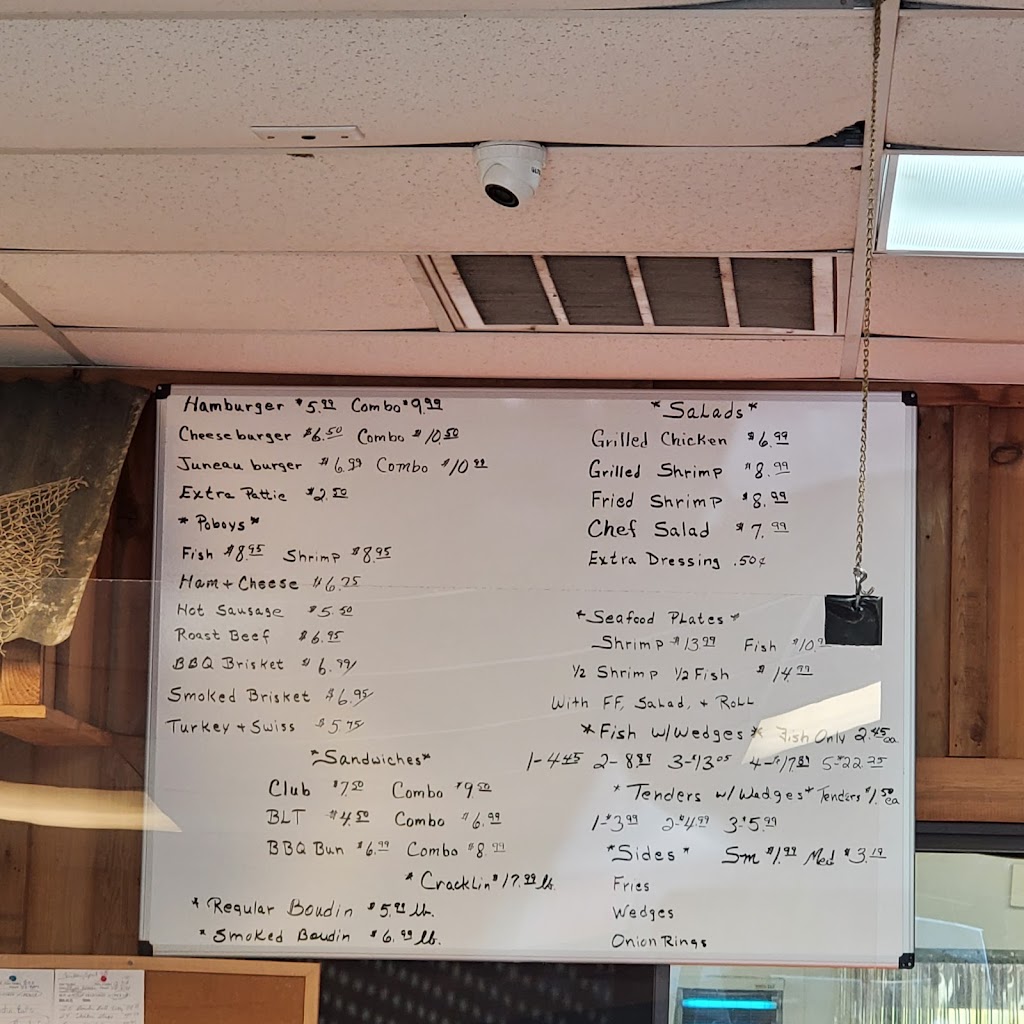 Hamburger $5.99 Combo $9.99
Cheeseburger $6.50 Combo $10.50
Juneau burger $6.99 Combo $10.99
Extra Pattie $2.50
*Poboys*
Fish $8.95 Shrimp $8.95
Ham + Cheese $6.75
Hot Sausage $5.50
Roast Beef $6.95
BBQ Brisket $6.99
Smoked Brisket $6.95
Turkey + Swiss $5.75
*Sandwiches*
Club $7.50 Combo $9.50
BLT $4.50 Combo $6.99
BBQ Bun $6.99 Combo $8.99
*Cracklin $17.99 lb.
*Regular Boudin $5.99 lb.
*Smoked Boudin $6.99 lb.
*Salads*
Grilled Chicken $6.99
Grilled Shrimp $8.99
Fried Shrimp $8.99
Chef Salad $7.99
Extra Dressing .50¢
*Seafood Plates*
Shrimp $13.99 Fish
1/2 Shrimp 1/2 Fish $14.99
With FF, Salad, + Roll
*Fish w/Wedges* Fish Only 2.45 ea
1-4.45 2-8.89 3-$13.05 4-$17.89 5-$22.25
*Tenders w/Wedges* Tenders $1.50 ea
1-$3.99 2-$4.99 3-$5.99
*Sides* Sm $1.99 Med $3.19
Fries
Wedges
Onion Rings